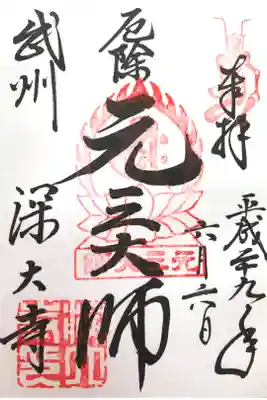 奉拝
平成二十九年
六月六日
厄除
元三大師
武州
深大寺